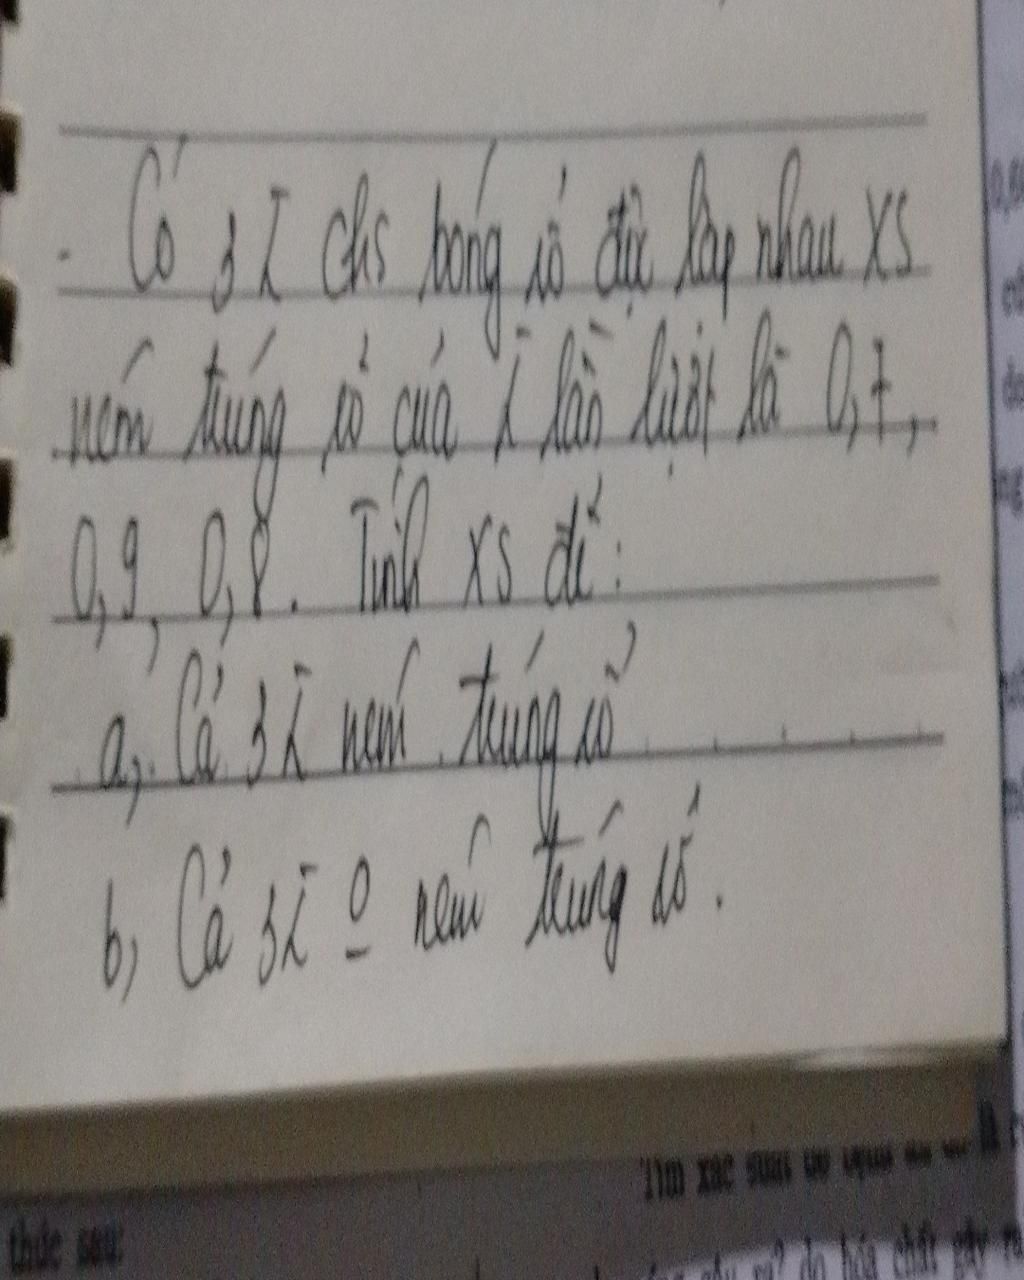 - Có 3 ī chs bóng rổ độc lập nhau XS
ném trúng rổ của ī lần lượt là 0,7,
0,9, 0,8. Tính XS để:
a, Cả 3 ī ném trúng rổ
b, Cả 3 ī o ném trúng rổ.
Tìm xác suất
thức sau:
hóa chất gây ra